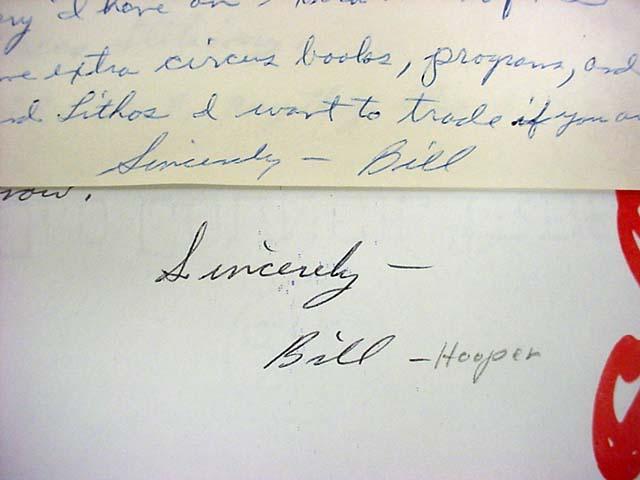 I have on
extra circus books, programs, and
Lithos I want to trade if you
Sincerely - Bill
now.
Sincerely -
Bill - Hooper